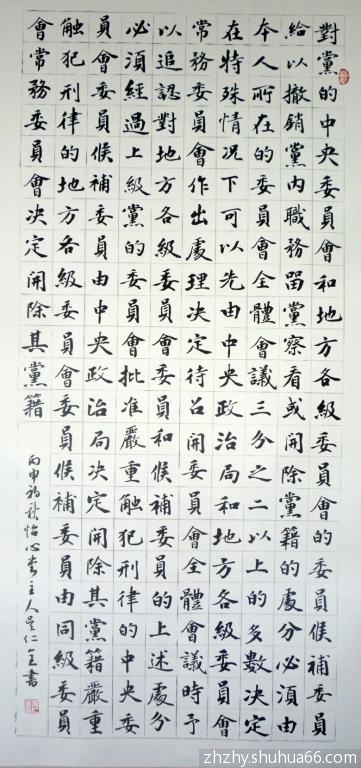 對黨的中央委員會和地方各級委員會的委員候補委員
給以撤銷黨內職務留黨察看或開除黨籍的處分必須由
本人所在的委員會全體會議三分之二以上的多數决定
在特殊情况下可以先由中央政治局和地方各級委員會
常務委員會作出處理决定待召開委員會全體會議時予
以追認對地方各級委員會委員和候補委員的上述處分
必須經過上級黨的委員會批准嚴重觸犯刑律的中央委
員會委員候補委員由中央政治局决定開除其黨籍嚴重
觸犯刑律的地方各級委員會委員候補委員由同級委員
會常務委員會决定開除其黨籍
丙申初秋怡心齋主人吳仁全書
zhzhy.shuhua66.com